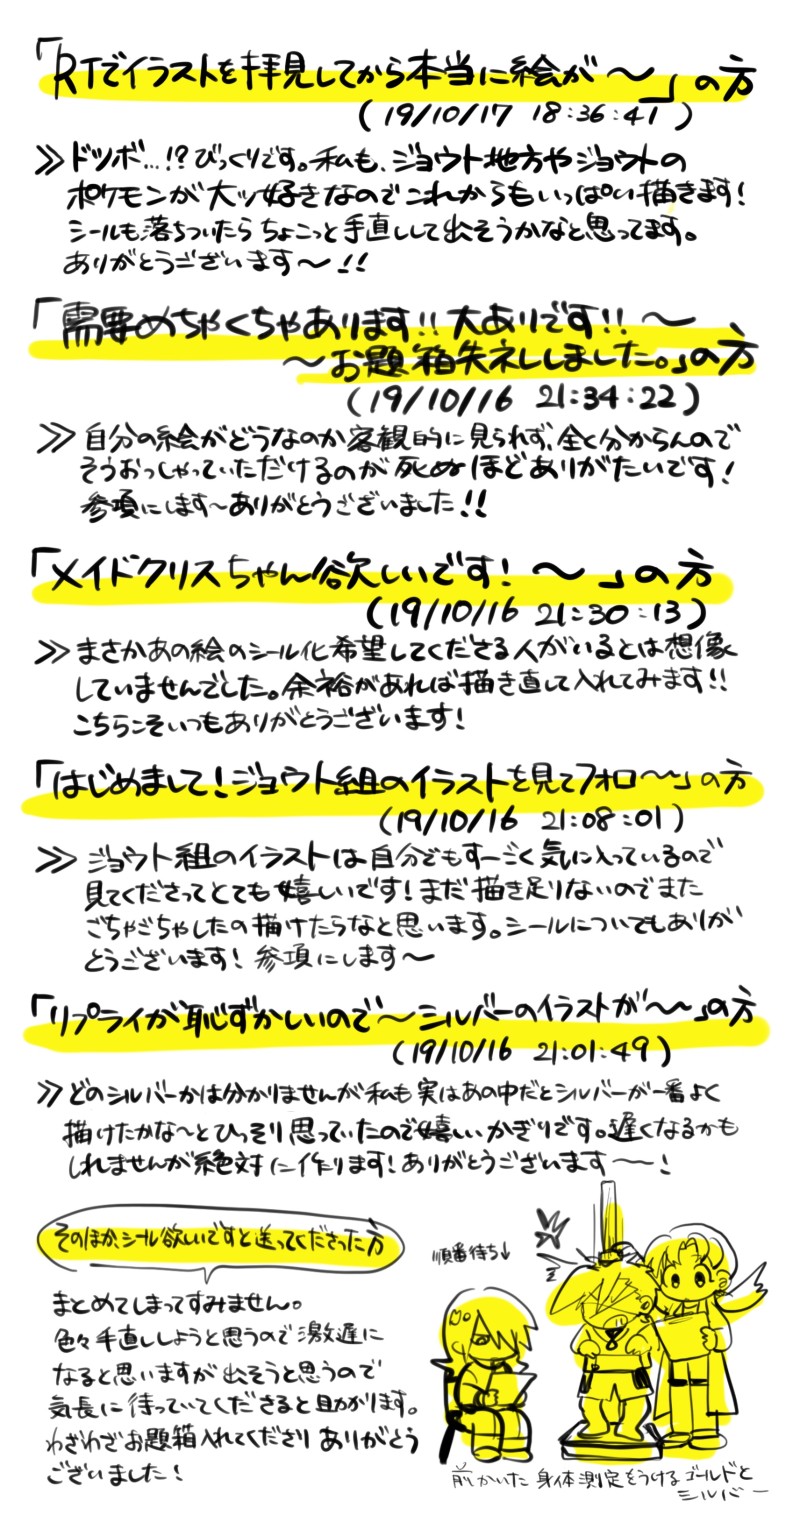 「RTでイラストを拝見してから本当に絵が〜」の方
(19/10/17 18:36:41)
≫ドツボ…!?びっくりです。私も、ジョウト地方やジョウトの
ポケモンが大ッ好きなのでこれからもいっぱい描きます!
シールも落ちついたらちょこっと手直しして出そうかなと思ってます。
ありがとうございます〜!!
「需要めちゃくちゃあります!!大ありです!!〜
〜お題箱失礼しました。」の方
(19/10/16 21:34:22)
≫自分の絵がどうなのか客観的に見られず、全と分からんので
そうおっしゃっていただけるのが死ぬほどありがたいです!
参項にします〜ありがとうございました!!
「メイドクリスちゃん欲しいです!〜」の方
(19/10/16 21:30:13)
≫まさかあの絵のシール化希望してくださる人がいるとは想像
していませんでした。余裕があれば描き直して入れてみます!!
こちらこそいつもありがとうございます!
「はじめまして!ジョウト組のイラストを見てフォロ〜〜」の方
(19/10/16 21:08:01)
≫ジョウト組のイラストは自分でもすーごく気に入っているので
見てくださってとても嬉しいです!まだ描き足りないのでまた
ごちゃごちゃしたの描けたらなと思います。シールについてもありが
とうございます!参項にします〜
「リプライが恥ずかしいので〜シルバーのイラストが〜〜」の方
(19/10/16 21:01:49)
≫どのシルバーかは分かりませんが私も実はあの中だとシルバーが一番よく
描けたかな〜とひっそり思っていたので嬉しいかぎりです。遅くなるかも
しれませんが絶対に作ります!ありがとうございます〜!
そのほか、シール欲しいですと送ってくださった方
まとめてしまってすみません。
色々手直ししようと思うので激遅に
なると思いますが出そうと思うので
気長に待っていてくださると助かります。
わざわざお題箱入れてくださりありがとう
ございました!
順番待ち↓
前かいた身体測定をうけるゴールドと
シルバー